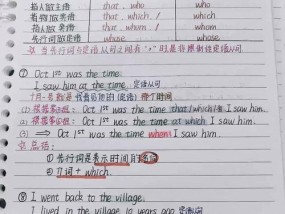 指人做主语 that , who
指人做宾语 that , which /
指物做主语 that , which
先行词做定语 whose whose
当先行词与定语从句之间有“,”时是非限制性定语从句
① Oct 1st was the time.
I saw him at the time. 定语从句
十月一号就是我看见他的(定语)那个时间
(1) Oct 1st was the time that/which I saw him.
(2) Oct 1st was the time at which I saw him.
(3) ⇒ Oct 1st was the time when I saw him.
总结:
① 先行词是表示时间的
② 介词 + which.
② I went back to the village.
I lived in the village 10 years ago 定语从句